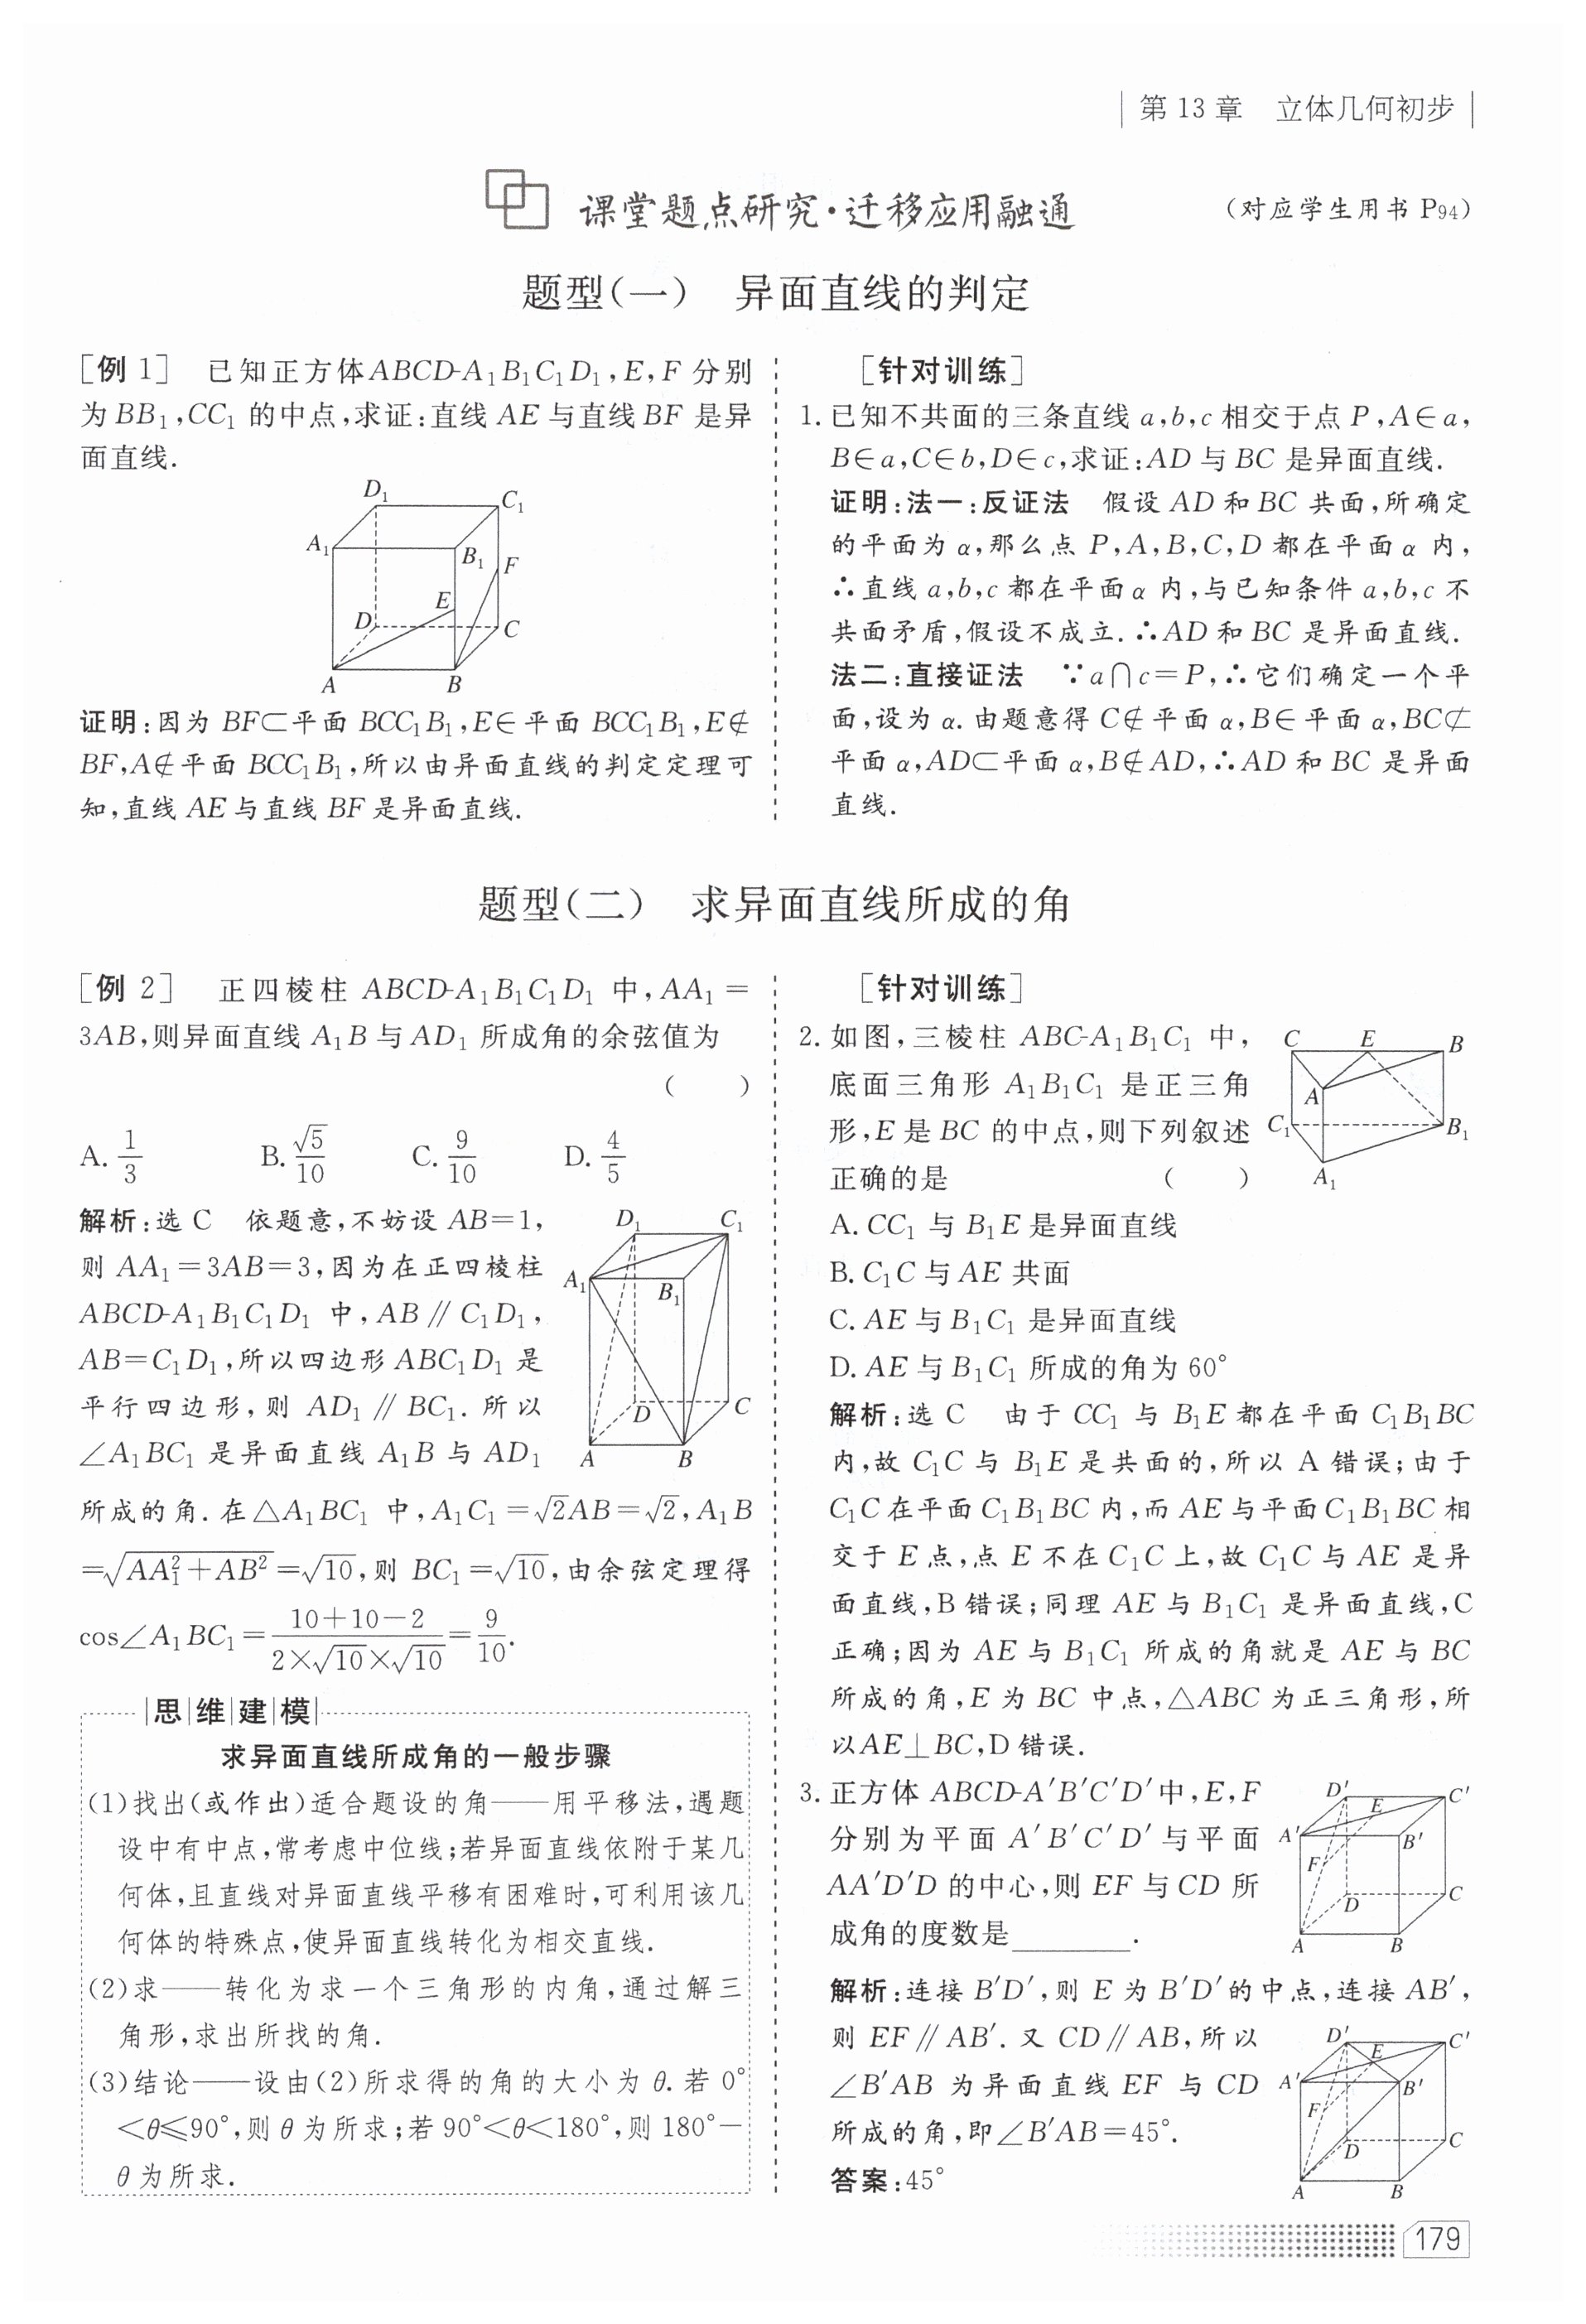 第 13 章　立体几何初步
课堂题点研究·迁移应用融通
(对应学生用书 P94)
题型(一)　异面直线的判定
[例 1]　已知正方体ABCD-A₁B₁C₁D₁,E,F 分别
为 BB₁,CC₁ 的中点,求证:直线 AE 与直线 BF 是异
面直线.
D₁
C₁
A₁
B₁
F
E
D
C
A
B
证明:因为 BF⊂平面 BCC₁B₁,E∈平面 BCC₁B₁,E∉
BF,A∉平面 BCC₁B₁,所以由异面直线的判定定理可
知,直线 AE 与直线 BF 是异面直线.
[针对训练]
1. 已知不共面的三条直线 a,b,c 相交于点 P,A∈a,
B∈a,C∈b,D∈c,求证:AD 与 BC 是异面直线.
证明:法一:反证法　假设 AD 和 BC 共面,所确定
的平面为 α,那么点 P,A,B,C,D 都在平面 α 内,
∴直线 a,b,c 都在平面 α 内,与已知条件 a,b,c 不
共面矛盾,假设不成立.∴AD 和 BC 是异面直线.
法二:直接证法　∵a∩c=P,∴它们确定一个平
面,设为 α. 由题意得 C∉平面 α,B∈平面 α,BC⊄
平面 α,AD⊂平面 α,B∉AD,∴AD 和 BC 是异面
直线.
题型(二)　求异面直线所成的角
[例 2]　正四棱柱 ABCD-A₁B₁C₁D₁ 中,AA₁=
3AB,则异面直线 A₁B 与 AD₁ 所成角的余弦值为
(　　)
A. 1/3　B. √5/10　C. 9/10　D. 4/5
解析:选 C　依题意,不妨设 AB=1,
则 AA₁=3AB=3,因为在正四棱柱
ABCD-A₁B₁C₁D₁ 中,AB∥C₁D₁,
AB=C₁D₁,所以四边形 ABC₁D₁ 是
平行四边形,则 AD₁∥BC₁. 所以
∠A₁BC₁ 是异面直线 A₁B 与 AD₁
D₁
C₁
A₁
B₁
D
C
A
B
所成的角. 在△A₁BC₁ 中,A₁C₁=√2AB=√2,A₁B
=√(AA₁²+AB²)=√10,则 BC₁=√10,由余弦定理得
cos∠A₁BC₁=(10+10-2)/(2×√10×√10)=9/10.
思维建模
求异面直线所成角的一般步骤
(1)找出(或作出)适合题设的角——用平移法,遇题
设中有中点,常考虑中位线;若异面直线依附于某几
何体,且直线对异面直线平移有困难时,可利用该几
何体的特殊点,使异面直线转化为相交直线.
(2)求——转化为求一个三角形的内角,通过解三
角形,求出所找的角.
(3)结论——设由(2)所求得的角的大小为 θ. 若 0°
<θ≤90°,则 θ 为所求;若 90°<θ<180°,则 180°-
θ 为所求.
[针对训练]
2. 如图,三棱柱 ABC-A₁B₁C₁ 中,
底面三角形 A₁B₁C₁ 是正三角
形,E 是 BC 的中点,则下列叙述
正确的是　(　　)
C
E
B
A
C₁
B₁
A₁
A. CC₁ 与 B₁E 是异面直线
B. C₁C 与 AE 共面
C. AE 与 B₁C₁ 是异面直线
D. AE 与 B₁C₁ 所成的角为 60°
解析:选 C　由于 CC₁ 与 B₁E 都在平面 C₁B₁BC
内,故 C₁C 与 B₁E 是共面的,所以 A 错误;由于
C₁C 在平面 C₁B₁BC 内,而 AE 与平面 C₁B₁BC 相
交于 E 点,点 E 不在 C₁C 上,故 C₁C 与 AE 是异
面直线,B 错误;同理 AE 与 B₁C₁ 是异面直线,C
正确;因为 AE 与 B₁C₁ 所成的角就是 AE 与 BC
所成的角,E 为 BC 中点,△ABC 为正三角形,所
以 AE⊥BC,D 错误.
3. 正方体 ABCD-A′B′C′D′中,E,F
分别为平面 A′B′C′D′与平面
AA′D′D 的中心,则 EF 与 CD 所
成角的度数是________.
D′
C′
E
A′
B′
F
D
C
A
B
解析:连接 B′D′,则 E 为 B′D′的中点,连接 AB′,
则 EF∥AB′. 又 CD∥AB,所以
∠B′AB 为异面直线 EF 与 CD
所成的角,即∠B′AB=45°.
答案:45°
D′
C′
E
A′
B′
F
D
C
A
B
179